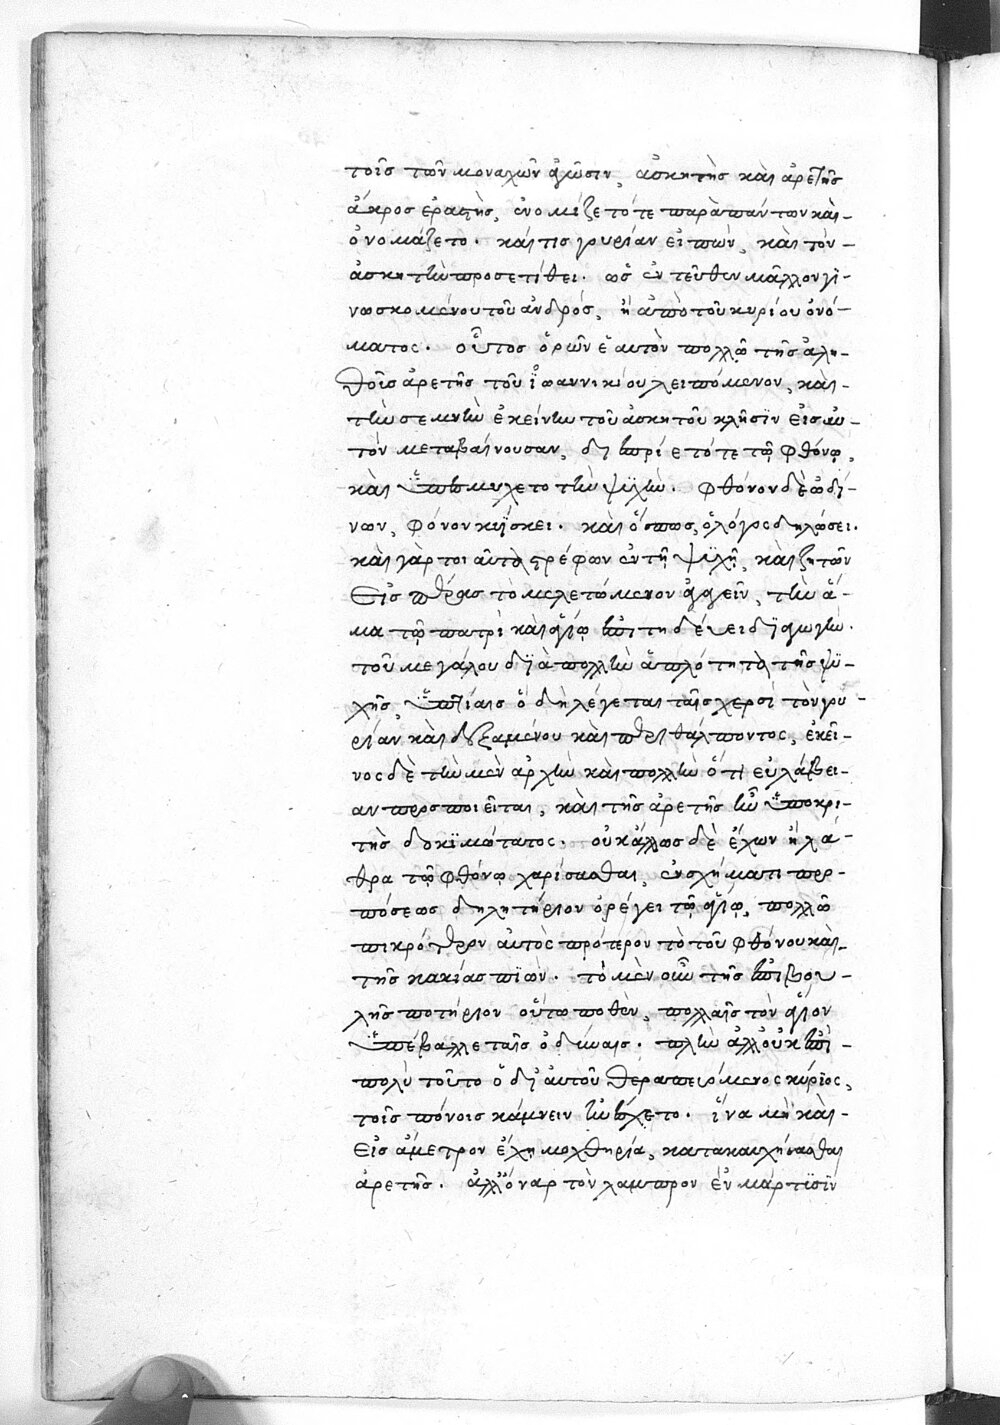 τοῖς τῶν μοναχῶν ἀγῶσιν, ἀσκητὴς καὶ ἀρετῆς
ἄκρος ἐραστὴς, ἐνομίζετό τε παρὰ πάντων καὶ
ὀνομάζετο. καί τις γυρίαν εἰπὼν, καὶ τὸν
ἀσκητὴν προσετίθει. ὡς ἐντεῦθεν μᾶλλον γι-
νωσκομένου τοῦ ἀνδρός, ἢ ἀπὸ τοῦ κυρίου ὀνό-
ματος. οὗτος ὁρῶν ἑαυτὸν πολλῶ τῆς ἀλη-
θοῦς ἀρετῆς τοῦ ἰωαννικίου λειπόμενον, καὶ
τὴν σεμνὴν ἐκείνην τοῦ ἀσκητοῦ κλῆσϊν εἰς αὐ-
τὸν μεταβαίνουσαν, διεπρίετό τε τῷ φθόνῳ,
καὶ ὑπεσμύχετο τὴν ψϋχὴν. φθόνον δὲ ὠδί-
νων, φόνον κυΐσκει. καὶ ὅπως, ὁ λόγος δηλώσει.
καὶ γάρ τοι αὐτὸ τρέφων ἐν τῇ ψϋχῇ, καὶ ζητῶν
εἰς πέρας τὸ μελετώμενον ἀγαγεῖν, τὴν ἅ-
μα τῷ πατρὶ καὶ ἁγίῳ ἐπιτηδεύει δϊαγωγὴν.
τοῦ μεγάλου δϊὰ πολλὴν ἁπλότητα τῆς ψϋ-
χῆς, ὑπτίαις ὃ δὴ λέγεται ταῖς χερσὶ τὸν γυ-
ρίαν καὶ δεξαμένου καὶ περιθάλποντος, ἐκεῖ-
νος δὲ τὴν μὲν ἀρχὴν καὶ πολλὴν ὅτι εὐλάβει-
αν προσποιεῖται, καὶ τῆς ἀρετῆς ἦν ὑποκρι-
τὴς δοκϊμώτατος. οὐκ ἄλλως δὲ ἔχων ἢ λά-
θρα τῷ φθόνῳ χαρίσασθαι, ἐν σχήματι προ-
πόσεως δηλητήριον ὀρέγει τῷ ἁγίῳ, πολλῷ
πικρότερον αὐτὸς πρότερον τὸ τοῦ φθόνου καὶ
τῆς κακίας πϊών. τὸ μὲν οὖν τῆς ἐπιβου-
λῆς ποτήριον οὕτω ποθὲν, πολλαῖς τὸν ἅγιον
ὑπέβαλλε ταῖς ὀδύναις. πλὴν ἀλλ' οὐκ ἐπὶ
πολὺ τοῦτο ὁ δι' αὐτοῦ θεραπευόμενος κύριος,
τοῖς πόνοις κάμνειν ἠνέσχετο. ἵνα μὴ καὶ
εἰς ἄμετρον ἔχῃ μοχθηρία, κατακαυχήσασθαι
ἀρετῆς. ἀλλ' ὄναρ τὸν λαμπρὸν ἐν μάρτϋσϊν